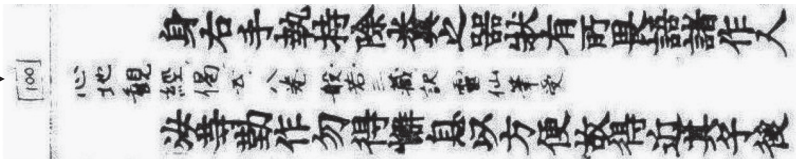 [100]
身右手執持除糞之器狀有所畏語諸作人
心地観經偈云 八巻 般若三蔵訳 霊仙筆受
汝等勤作勿得懈息以方便故得近其子後